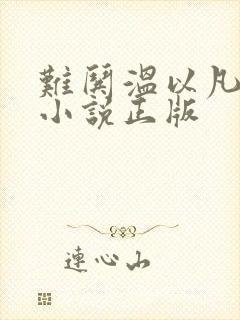 難鬨溫以凡
小說正版
連心山